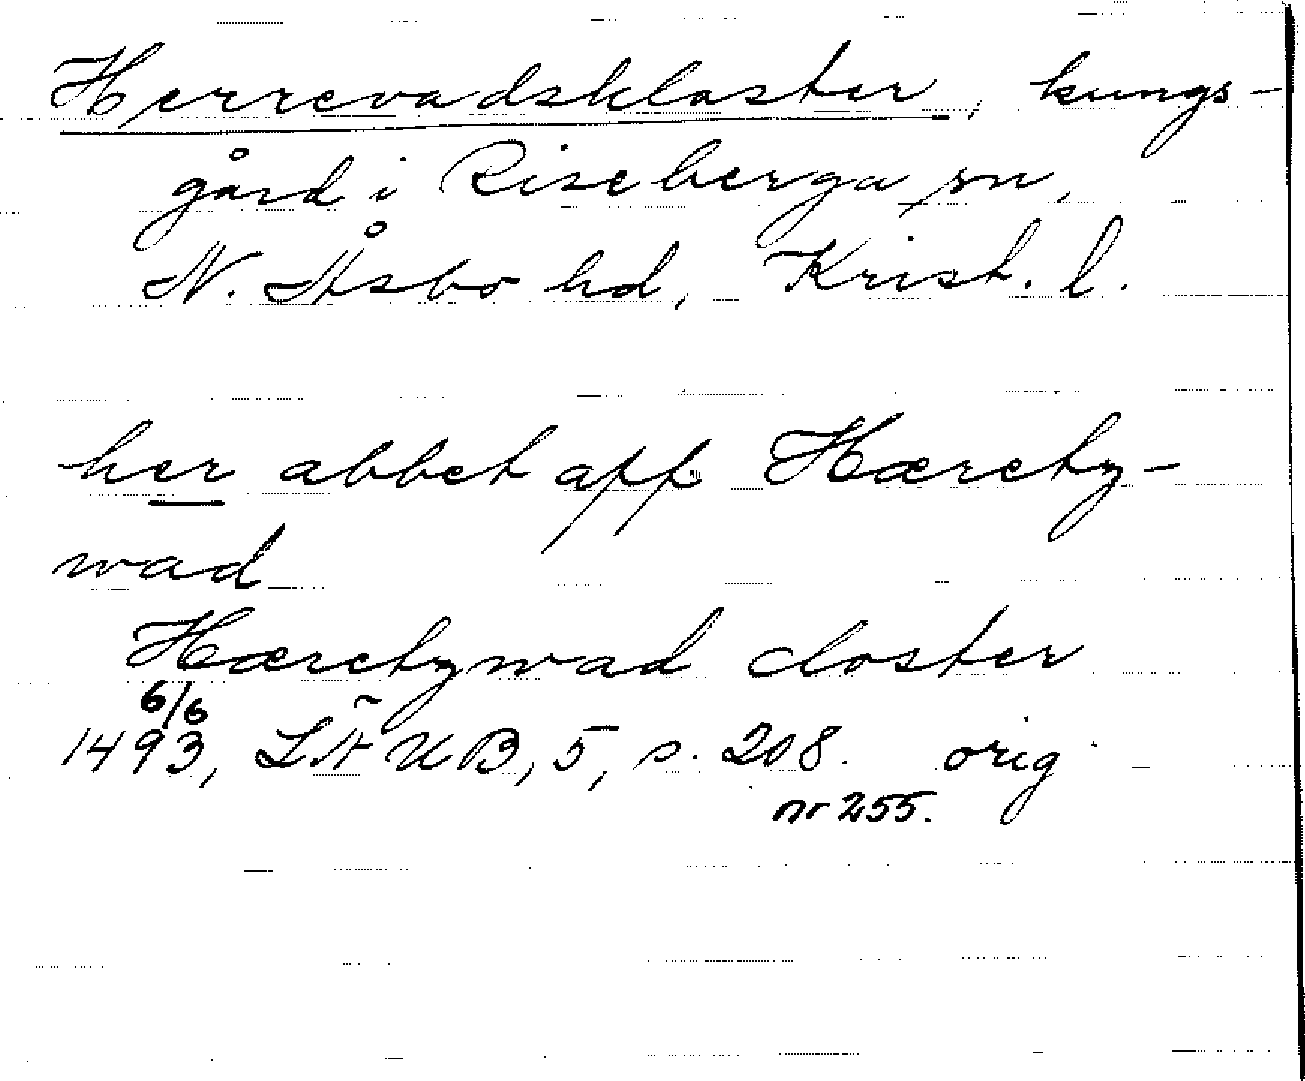 Herrevadskloster, kungs-
gård i Riseberga sn,
N. Åsbo hd, Krist. l.
her abbet aff Hærety-
wad
Hæretywad closter
6/6
1493, LÄUB, 5, s. 208. orig
nr 255.